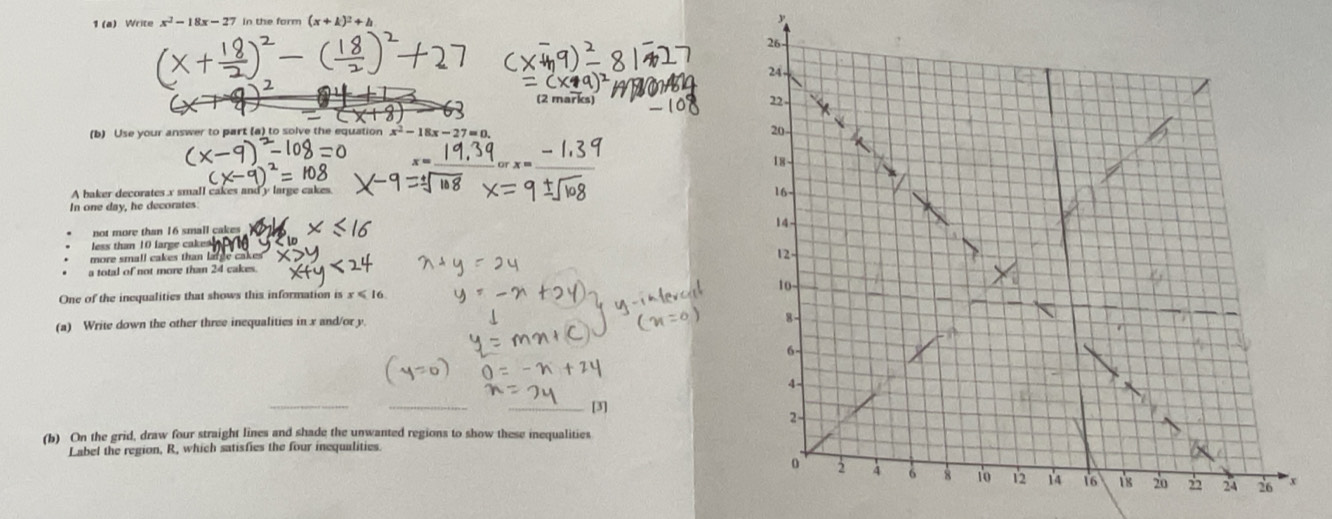 1 (a) Write x² − 18x − 27 in the form (x + k)² + h
(x + 18/2)² − (18/2)² + 27
(x − 9)² − 81 − 27
= (x − 9)²
− 108
(2 marks)
(b) Use your answer to part (a) to solve the equation x² − 18x − 27 = 0.
(x − 9)² − 108 = 0
x = 19.39 or x = − 1.39
(x − 9)² = 108
x − 9 = ±√108
x = 9 ± √108
A baker decorates x small cakes and y large cakes.
In one day, he decorates
• not more than 16 small cakes x ≤ 16
• less than 10 large cakes y < 10
• more small cakes than large cakes x > y
• a total of not more than 24 cakes. x + y < 24
x + y = 24
One of the inequalities that shows this information is x ⩽ 16.
y = −x + 24
y-intercept
(x = 0)
(a) Write down the other three inequalities in x and/or y.
y = mx + c
(y = 0) 0 = −x + 24
x = 24
[3]
(b) On the grid, draw four straight lines and shade the unwanted regions to show these inequalities
Label the region, R, which satisfies the four inequalities.
y
26
24
22
20
18
16
14
12
10
8
6
4
2
0 2 4 6 8 10 12 14 16 18 20 22 24 26 x